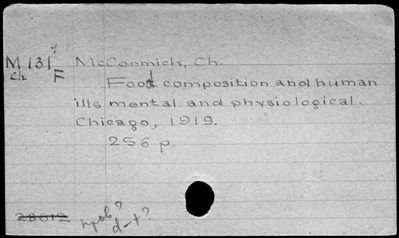 M 131 McCormich, Ch.
Ch F
Food composition and human
ills mental and physiological.
Chicago, 1919.
256 p.
28612